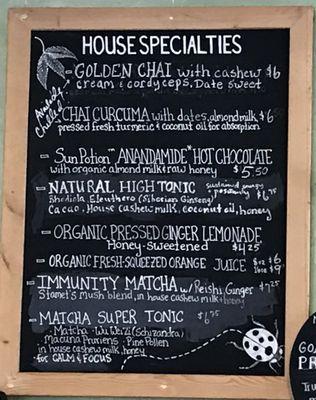 HOUSE SPECIALTIES
- GOLDEN CHAI with cashew $6
cream & cordyceps. Date sweet
CHAI CURCUMA with dates, almond milk $6
pressed fresh turmeric & coconut oil for absorption
- Sun Potion "ANANDAMIDE" HOT CHOCOLATE
with organic almond milk & raw honey $5.50
- NATURAL HIGH TONIC sustained energy
Rhodiola, Eleuthero (Siberian Ginseng) $6.75
Cacao, House cashew milk, coconut oil, honey
- ORGANIC PRESSED GINGER LEMONADE
Honey-Sweetened $4.25
- ORGANIC FRESH-SQUEEZED ORANGE JUICE 8oz $6
16oz $9
- IMMUNITY MATCHA w/ Reishi, Ginger $7.25
Stamet's mush blend, in house cashew milk & honey
- MATCHA SUPER TONIC $6.75
- Matcha - Wu Wei Zi (Schizandra)
Macuna Pruriens - Pine Pollen
in house cashew milk, honey
for CALM & FOCUS